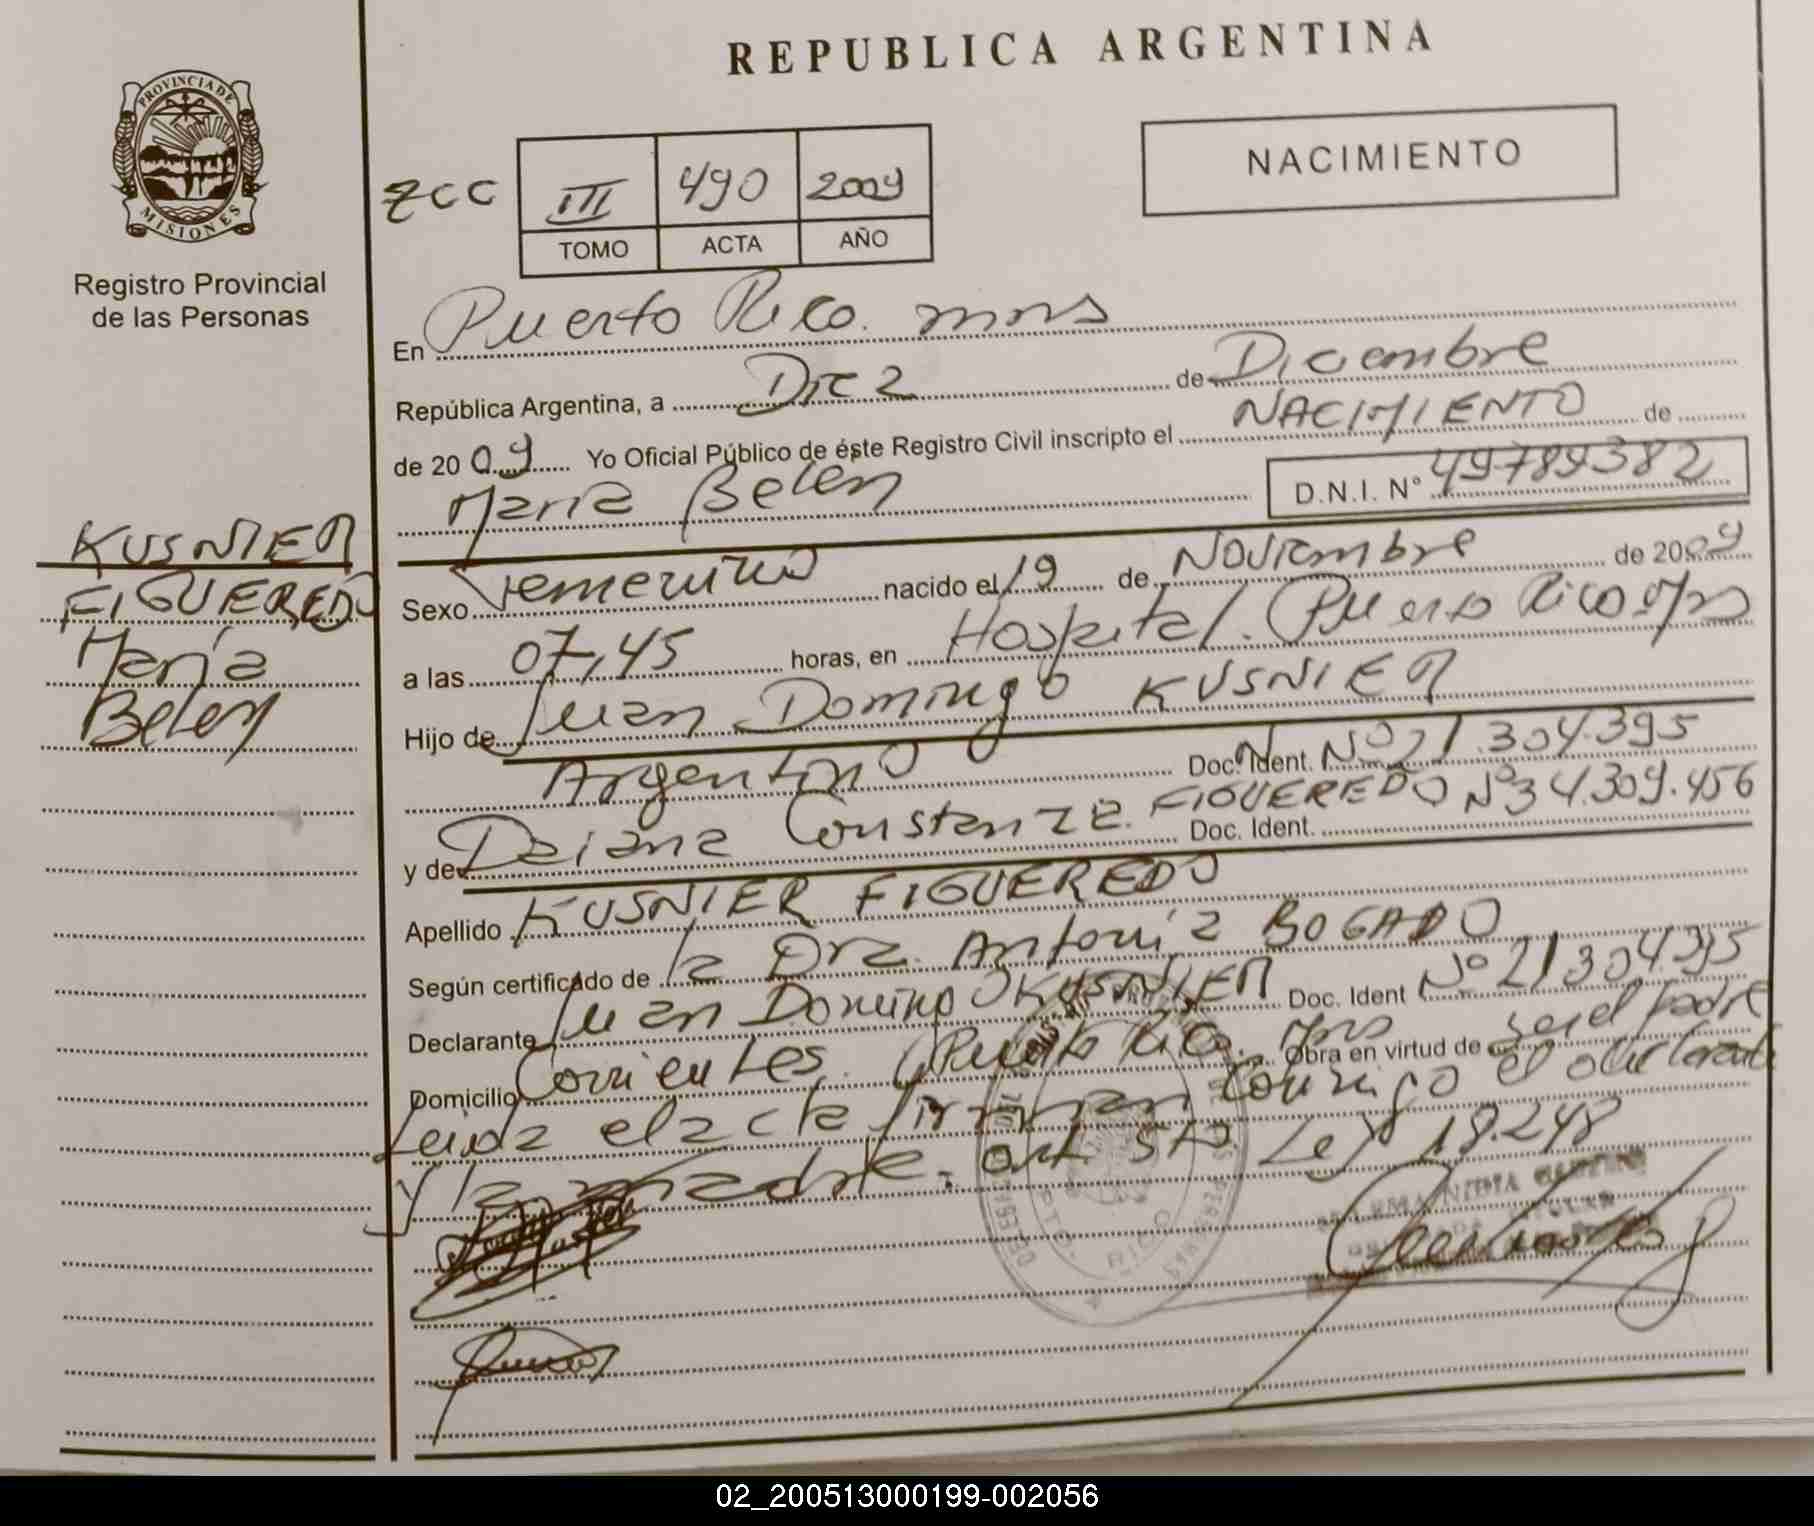 REPUBLICA ARGENTINA
PROVINCIA DE
MISIONES
Registro Provincial
de las Personas
NACIMIENTO
ZCC
III 490 2009
TOMO ACTA AÑO
En Puerto Rico. mns
República Argentina, a Diez de Diciembre
de 2009 Yo Oficial Público de éste Registro Civil inscripto el NACIMIENTO de
Maria Belen D.N.I. N° 49789382
KUSNIER
FIGUEREDO
Maria
Belen
Sexo Femenino nacido el 19 de Noviembre de 2009
a las 07,45 horas, en Hospital. Puerto Rico Mns
Hijo de Juan Domingo KUSNIER
Argentino Doc. Ident. N° 21.304.395
y de Daiana Constanza FIGUEREDO Doc. Ident. N° 34.309.456
Apellido KUSNIER FIGUEREDO
Según certificado de la Dra. Antonia BOGADO
Declarante Juan Domingo KUSNIER Doc. Ident N° 21304395
Domicilio Corrientes. Puerto Rico. Mns Obra en virtud de ser el padre
Leida el acta firman conmigo el declarante
y la madre. art. 5to Ley 18.248
PTO. RICO
02_200513000199-002056